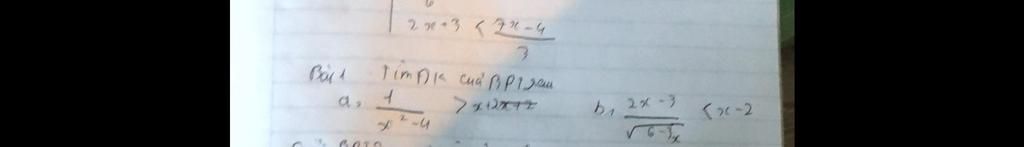 2x+3 < (7x-4)/3
Bài 1 Tìm ĐK của BPT sau
a, 1/(x²-4) > x+2 b, (2x-3)/√(6-3x) < x-2